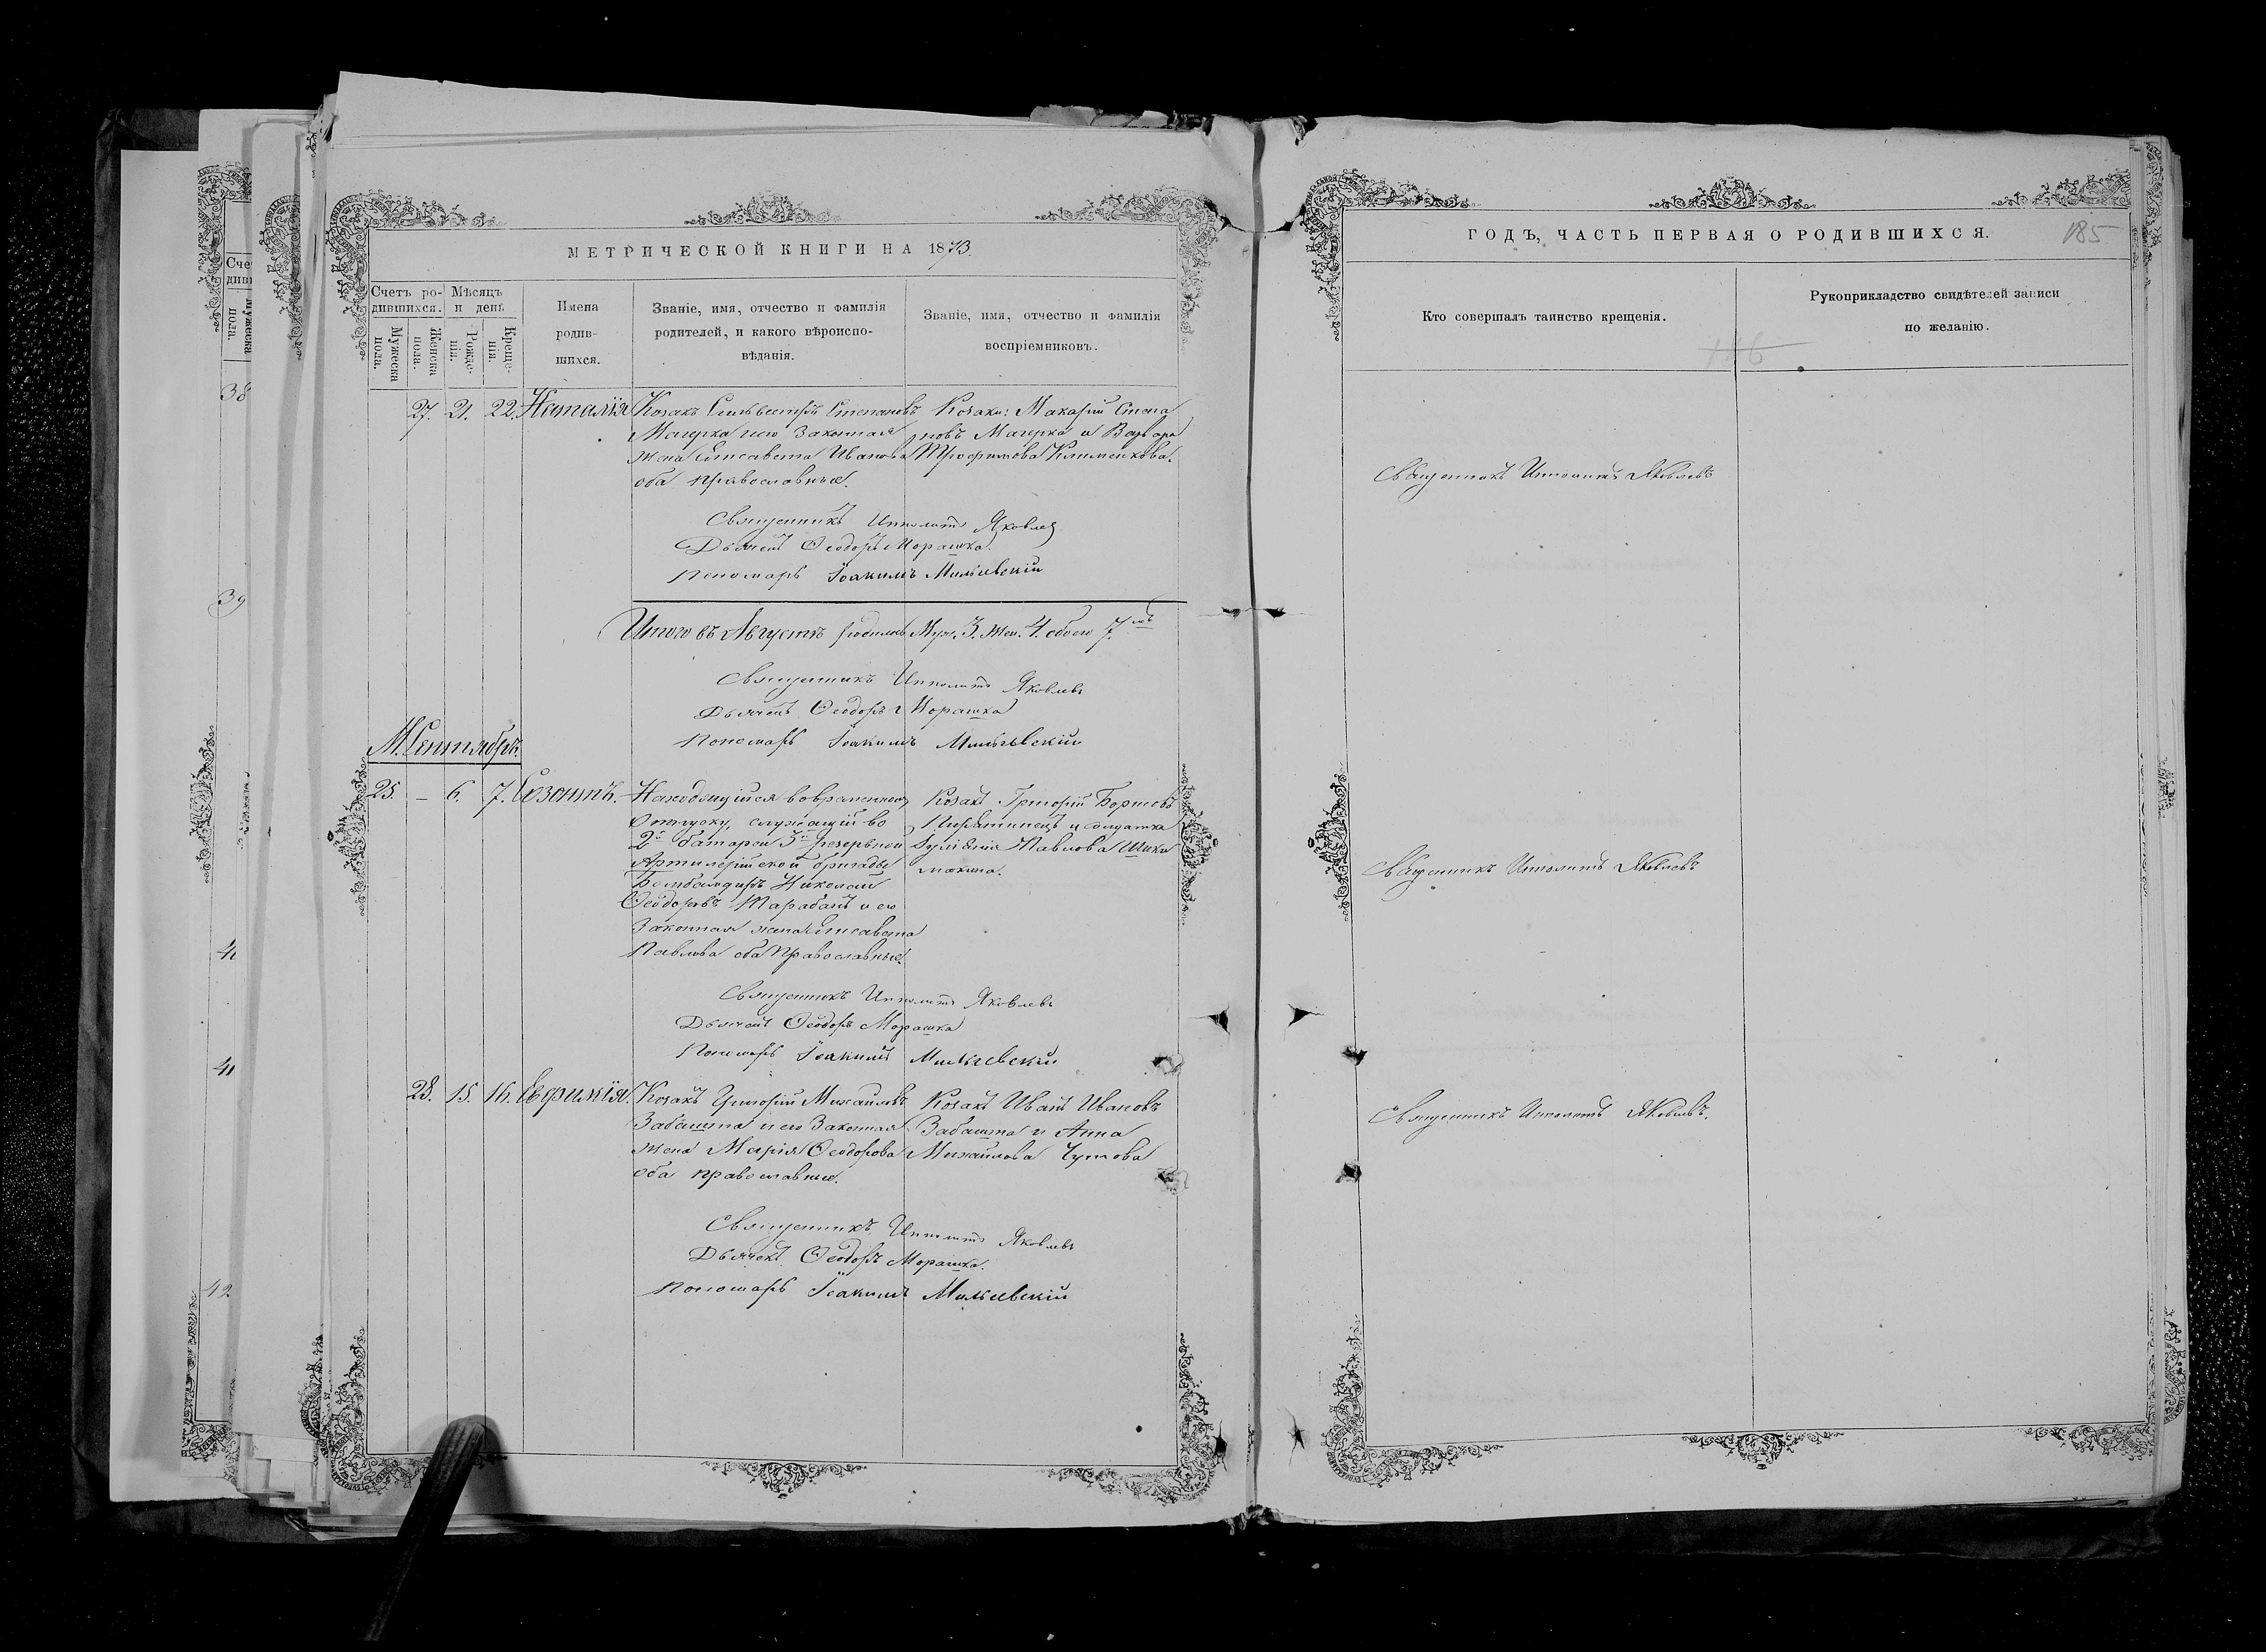 МЕТРИЧЕСКОЙ КНИГИ НА 1873.
Счетъ ро-
дившихся.
Мѣсяцъ
и день
Мужеска
пола.
Женска
пола.
Рожде-
нія.
Креще-
нія.
Имена
родив-
шихся.
Званіе, имя, отчество и фамилія
родителей, и какого вѣроиспо-
вѣданія.
Званіе, имя, отчество и фамилія
воспріемниковъ.
27. 21. 22. Наталія
Козакъ Сильвестръ Степановъ
Магерка и его Законная
жена Елисавета Иванова
оба православные.
Козаки: Макарій Степа
новъ Магерка и Варвара
Трофимова Клименкова.
Священникъ Ипполитъ Яковлев
Дьячекъ Ѳеодоръ Морашка.
Пономарь Іоакимъ Мильевскій
Итого въ Августѣ родилось Муж. 3. Жен. 4. обоего 7.
Священникъ Ипполитъ Яковлевъ
Дьячекъ Ѳеодоръ Морашка
Пономарь Іоакимъ Мильевскій
М. Сентябрь.
25. – 6. 7. Созонтъ.
Находящійся во временном
отпуску, служащій во
2й батареи 3й резервной
Артилерійской бригады
Бомбандиръ Николай
Ѳеодоровъ Тарабанъ и его
Законная жена Елисавета
Павлова оба Православные.
Козакъ Григорій
Пирятинецъ и солдатка
Павлова
Священникъ Ипполитъ Яковлевъ
Дьячекъ Ѳеодоръ Морашка
Пономарь Іоакимъ Мильевскій
28. 15. 16. Евфимія.
Козакъ Григорій Михайловъ
Забашта и его Законная
жена Марія Ѳеодорова
оба православные.
Козакъ Иванъ Ивановъ
Забашта и Анна
Михайлова Чуткова
Священникъ Ипполитъ Яковлевъ
Дьячекъ Ѳеодоръ Морашка.
Пономарь Іоакимъ Мильевскій
ГОДЪ, ЧАСТЬ ПЕРВАЯ О РОДИВШИХСЯ.
185
Кто совершалъ таинство крещенія.
Рукоприкладство свидѣтелей записи
по желанію.
146
Священникъ Ипполитъ Яковлевъ
Священникъ Ипполитъ Яковлевъ
Священникъ Ипполитъ Яковлевъ.
38
39
41
42